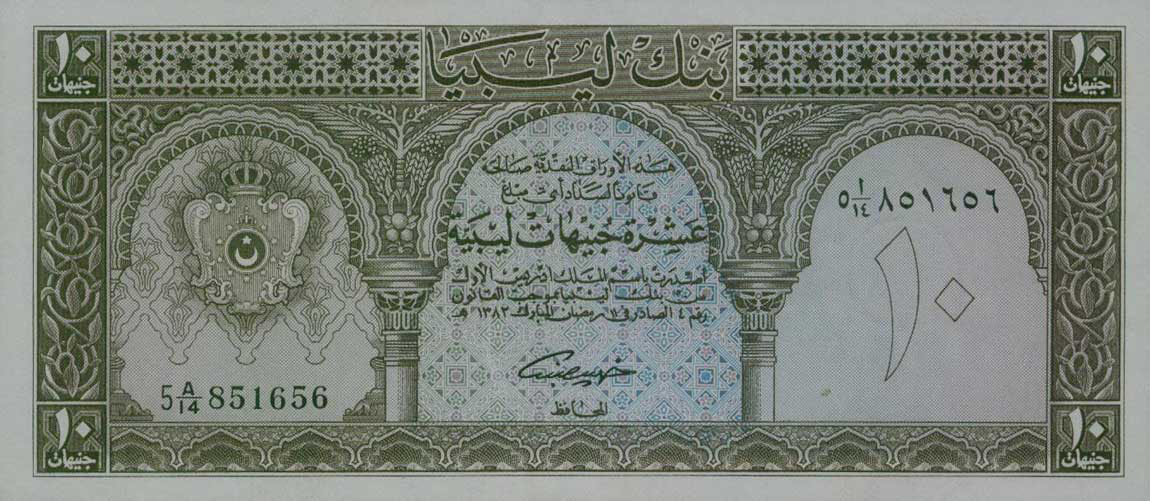 ١٠ جنيهات
بنك ليبيا
١٠ جنيهات
هذه الأوراق النقدية صالحة
قانوناً لسداد أي مبلغ
عشرة جنيهات ليبية
٥ ١/١٤ ٨٥١٦٥٦
١٠
من بنك ليبيا بموجب القانون
رقم ٤ الصادر في ١١ رمضان المبارك ١٣٨٢ هـ
المحافظ
5 A/14 851656
١٠ جنيهات
١٠ جنيهات